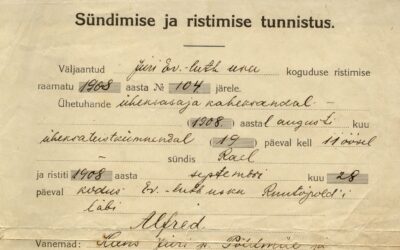 Sündimise ja ristimise tunnistus.
Väljaantud Jüri Ev.-luth usu koguduse ristimise
raamatu 1908 aasta № 104 järele.
Ühetuhande üheksasaja kaheksandal —
(1908.) aastal augusti kuu
üheksateistkümnendal (19) päeval kell 11 öösel
— sündis Rael
ja ristiti 1908 aasta septembri kuu 28
päeval kodus Ev.-luth usku
läbi
Alfred.
Vanemad: Hans Jüri p. ja